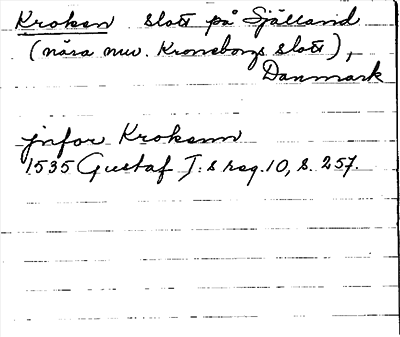 Kroken slott på Själland
(nära nuv. Kronoborgs slott),
Danmark
jnfor Krokenn
1535 Gustaf I:s reg. 10, s. 257.